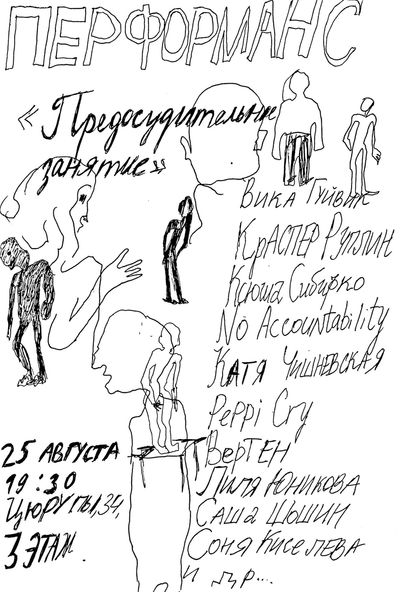 ПЕРФОРМАНС
«Предосудительное
занятие»
Вика Гуйвик
Краспер Руплин
Ксюша Сибирко
No Accountability
Катя Чишневская
Peppi Cry
Вертен
Лиля Юникова
Саша Шюшин
Соня Киселева
и др...
25 АВГУСТА
19:30
ЦЮРУПЫ,34,
3 ЭТАЖ.